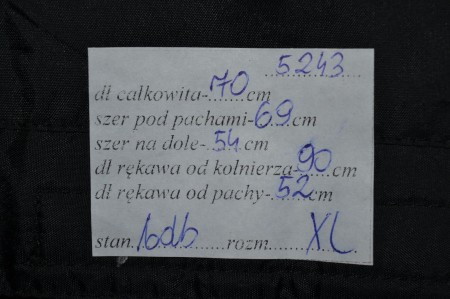 5243
dł całkowita-70cm
szer pod pachami-69cm
szer na dole-54cm
dł rękawa od kołnierza-90cm
dł rękawa od pachy-52cm
stan.bdb.......rozm....XL